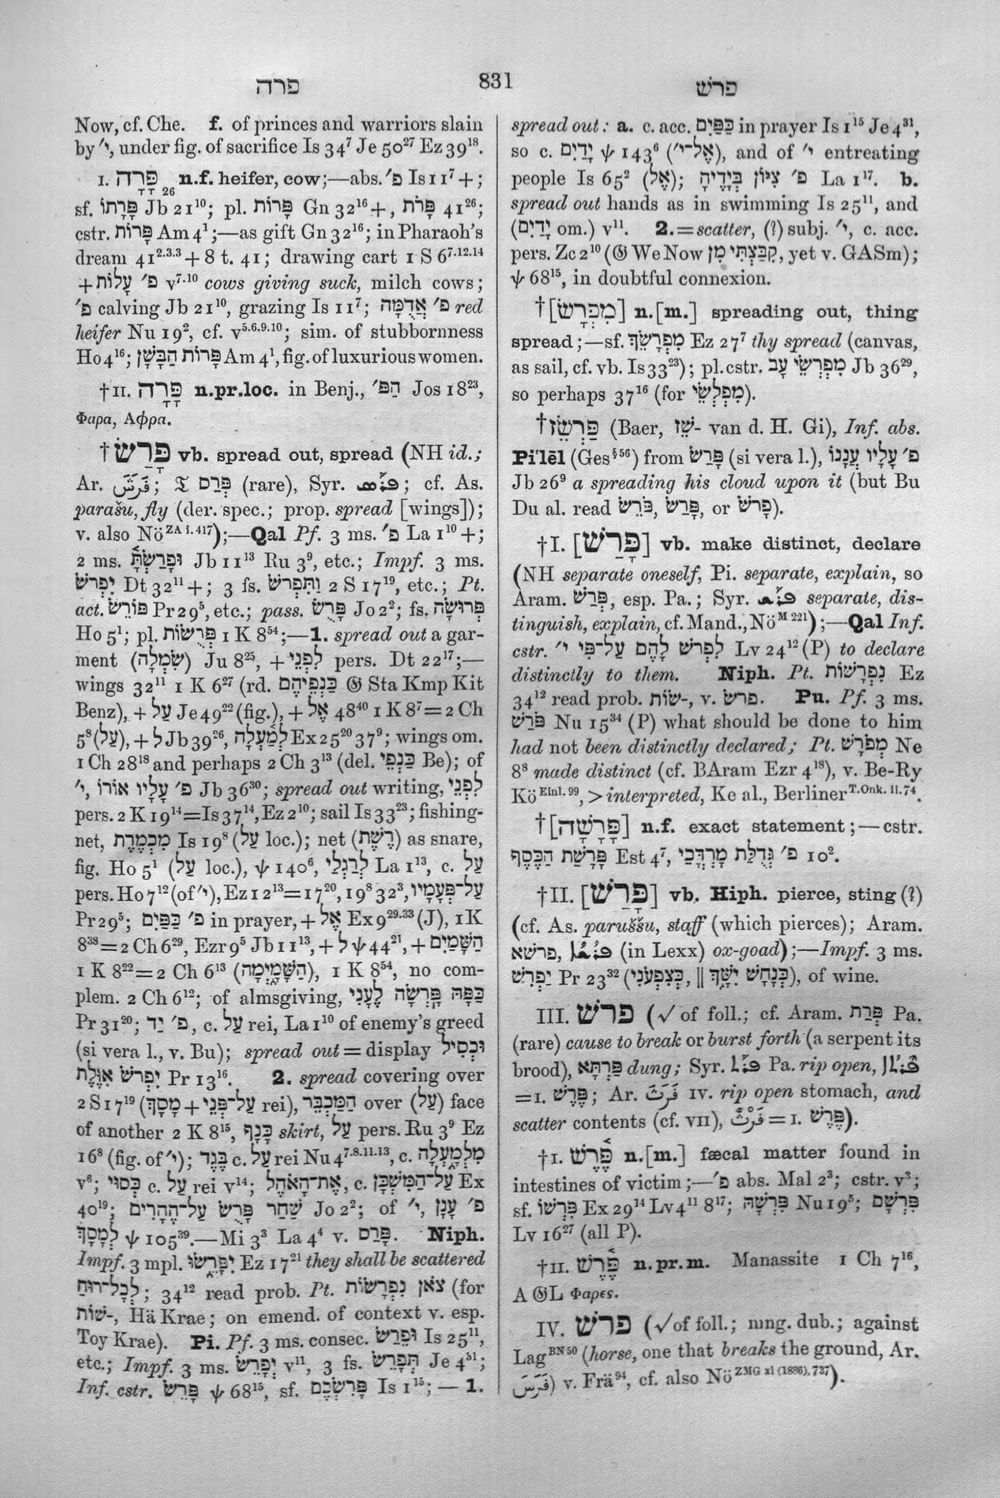 פרה
831
פרשׂ
Now, cf. Che. f. of princes and warriors slain
by ׳י, under fig. of sacrifice Is 34⁷ Je 50²⁷ Ez 39¹⁸.
I. פָּרָה 26 n.f. heifer, cow;—abs. פ׳ Is 11⁷+;
sf. פָּרָתוֹ Jb 21¹⁰; pl. פָּרוֹת Gn 32¹⁶+, פָּרֹת 41²⁶;
cstr. פָּרוֹת Am 4¹;—as gift Gn 32¹⁶; in Pharaoh's
dream 41²·³·³ + 8 t. 41; drawing cart 1 S 6⁷·¹²·¹⁴
+ פ׳ עָלוֹת v⁷·¹⁰ cows giving suck, milch cows;
פ׳ calving Jb 21¹⁰, grazing Is 11⁷; פ׳ אֲדֻמָּה red
heifer Nu 19², cf. v⁵·⁶·⁹·¹⁰; sim. of stubbornness
Ho 4¹⁶; פָּרוֹת הַבָּשָׁן Am 4¹, fig. of luxurious women.
†II. פָּרָה n.pr.loc. in Benj., הַפּ׳ Jos 18²³,
Φαρα, Αφρα.
†פָּרַשׂ vb. spread out, spread (NH id.;
Ar. فَرَشَ; 𝔗 פְּרַס (rare), Syr. ܦܪܣ; cf. As.
parašu, fly (der. spec.; prop. spread [wings]);
v. also Nö ZA i. 417);—Qal Pf. 3 ms. פ׳ La 1¹⁰+;
2 ms. וּפָרַשְׂתָּ Jb 11¹³ Ru 3⁹, etc.; Impf. 3 ms.
יִפְרֹשׂ Dt 32¹¹+; 3 fs. וַתִּפְרֹשׂ 2 S 17¹⁹, etc.; Pt.
act. פּוֹרֵשׂ Pr 29⁵, etc.; pass. פָּרֻשׂ Jo 2²; fs. פְּרוּשָׂה
Ho 5¹; pl. פְּרֻשׂוֹת 1 K 8⁵⁴;—1. spread out a gar-
ment (שִׂמְלָה) Ju 8²⁵, + לִפְנֵי pers. Dt 22¹⁷;—
wings 32¹¹ 1 K 6²⁷ (rd. כַּנְפֵיהֶם 𝔊 Sta Kmp Kit
Benz), + עַל Je 49²² (fig.), + אֶל 48⁴⁰ 1 K 8⁷=2 Ch
5⁸ (עַל), + לְ Jb 39²⁶, לְמַעְלָה Ex 25²⁰ 37⁹; wings om.
1 Ch 28¹⁸ and perhaps 2 Ch 3¹³ (del. כַּנְפֵי Be); of
׳י, פ׳ עָלָיו אוֹרוֹ Jb 36³⁰; spread out writing, לִפְנֵי
pers. 2 K 19¹⁴=Is 37¹⁴, Ez 2¹⁰; sail Is 33²³; fishing-
net, מִכְמֶרֶת Is 19⁸ (עַל loc.); net (רֶשֶׁת) as snare,
fig. Ho 5¹ (עַל loc.), ψ 140⁶, לְרַגְלַי La 1¹³, c. עַל
pers. Ho 7¹² (of ׳י), Ez 12¹³=17²⁰, 19⁸ 32³, עַל־פְּעָמָיו
Pr 29⁵; פ׳ כַּפַּיִם in prayer, + אֶל Ex 9²⁹·³³ (J), 1 K
8³⁸=2 Ch 6²⁹, Ezr 9⁵ Jb 11¹³, + לְ ψ 44²¹, + הַשָּׁמַיִם
1 K 8²²=2 Ch 6¹³ (הַשָּׁמָיְמָה), 1 K 8⁵⁴, no com-
plem. 2 Ch 6¹²; of almsgiving, כַּפָּהּ פָּרְשָׂה לֶעָנִי
Pr 31²⁰; פ׳ יָד, c. עַל rei, La 1¹⁰ of enemy's greed
(si vera l., v. Bu); spread out = display וּכְסִיל
יִפְרֹשׂ אִוֶּלֶת Pr 13¹⁶. 2. spread covering over
2 S 17¹⁹ (מָסָךְ + עַל־פְּנֵי rei), הַמַּכְבֵּר over (עַל) face
of another 2 K 8¹⁵, כָּנָף skirt, עַל pers. Ru 3⁹ Ez
16⁸ (fig. of ׳י); בֶּגֶד c. עַל rei Nu 4⁷·⁸·¹¹·¹³, c. מִלְמָעְלָה
v⁶; כְּסוּי c. עַל rei v¹⁴; אֶת־הָאֹהֶל, c. עַל־הַמִּשְׁכָּן Ex
40¹⁹; שַׁחַר פָּרֻשׂ עַל־הֶהָרִים Jo 2²; of ׳י, פ׳ עָנָן
לְמָסָךְ ψ 105³⁹.—Mi 3³ La 4⁴ v. פָּרַס. Niph.
Impf. 3 mpl. יִפָּרֵשׂוּ Ez 17²¹ they shall be scattered
לְכָל־רוּחַ; 34¹² read prob. Pt. צֹאן נִפְרָשׂוֹת (for
שׁוֹת-, Hä Krae; on emend. of context v. esp.
Toy Krae). Pi. Pf. 3 ms. consec. וּפֵרַשׂ Is 25¹¹,
etc.; Impf. 3 ms. יְפָרֵשׂ v¹¹, 3 fs. תְּפָרֵשׂ Je 4³¹;
Inf. cstr. פָּרֵשׂ ψ 68¹⁵, sf. פָּרִשְׂכֶם Is 1¹⁵;—1.
spread out: a. c. acc. כַּפַּיִם in prayer Is 1¹⁵ Je 4³¹,
so c. יָדַיִם ψ 143⁶ (אֶל־י׳), and of ׳י entreating
people Is 65² (אֶל); פ׳ צִיּוֹן בְּיָדֶיהָ La 1¹⁷. b.
spread out hands as in swimming Is 25¹¹, and
(יָדַיִם om.) v¹¹. 2. = scatter, (?) subj. ׳י, c. acc.
pers. Zc 2¹⁰ (𝔊 We Now קִבַּצְתִּי מִן, yet v. GASm);
ψ 68¹⁵, in doubtful connexion.
†[מִפְרָשׂ] n.[m.] spreading out, thing
spread;—sf. מִפְרָשֵׂךְ Ez 27⁷ thy spread (canvas,
as sail, cf. vb. Is 33²³); pl. cstr. מִפְרְשֵׂי עָב Jb 36²⁹,
so perhaps 37¹⁶ (for מִפְלְשֵׂי).
†פַּרְשֵׁז (Baer, שֵׁז- van d. H. Gi), Inf. abs.
Pi'lēl (Ges §⁵⁶) from פָּרַשׂ (si vera l.), פ׳ עָלָיו עֲנָנוֹ
Jb 26⁹ a spreading his cloud upon it (but Bu
Du al. read פֹּרֵשׂ, פָּרַשׂ, or פָּרֹשׂ).
†I. [פָּרַשׁ] vb. make distinct, declare
(NH separate oneself, Pi. separate, explain, so
Aram. פְּרַשׁ, esp. Pa.; Syr. ܦܪܫ separate, dis-
tinguish, explain, cf. Mand., Nö M 221);—Qal Inf.
cstr. לִפְרֹשׁ לָהֶם עַל־פִּי י׳ Lv 24¹² (P) to declare
distinctly to them. Niph. Pt. נִפְרָשׁוֹת Ez
34¹² read prob. שׂוֹת-, v. פרשׂ. Pu. Pf. 3 ms.
פֹּרַשׁ Nu 15³⁴ (P) what should be done to him
had not been distinctly declared; Pt. מְפֹרָשׁ Ne
8⁸ made distinct (cf. BAram Ezr 4¹⁸), v. Be-Ry
Kö Einl. 99, > interpreted, Ke al., Berliner T.Onk. ii. 74.
†[פָּרָשָׁה] n.f. exact statement;—cstr.
פָּרָשַׁת הַכֶּסֶף Est 4⁷, פ׳ גְּדֻלַּת מָרְדֳּכַי 10².
†II. [פָּרַשׁ] vb. Hiph. pierce, sting (?)
(cf. As. paruššu, staff (which pierces); Aram.
פרשא, (in Lexx) ox-goad);—Impf. 3 ms.
יַפְרִשׁ Pr 23³² (כְּצִפְעֹנִי, ‖ כְּנָחָשׁ יִשָּׁךְ), of wine.
III. פרשׁ (√ of foll.; cf. Aram. פְּרַת Pa.
(rare) cause to break or burst forth (a serpent its
brood), פַּרְתָּא dung; Syr. ܦܪܬ Pa. rip open,
= I. פֶּרֶשׁ; Ar. فَرَثَ IV. rip open stomach, and
scatter contents (cf. VII), فَرْثٌ = I. פֶּרֶשׁ).
†I. פֶּרֶשׁ n.[m.] fæcal matter found in
intestines of victim;—פ׳ abs. Mal 2³; cstr. v³;
sf. פִּרְשׁוֹ Ex 29¹⁴ Lv 4¹¹ 8¹⁷; פִּרְשָׁהּ Nu 19⁵; פִּרְשָׁם
Lv 16²⁷ (all P).
†II. פֶּרֶשׁ n.pr.m. Manassite 1 Ch 7¹⁶,
A 𝔊L Φαρες.
IV. פרשׁ (√ of foll.; mng. dub.; against
Lag BN 50 (horse, one that breaks the ground, Ar.
فَرَسَ) v. Frä⁹⁴, cf. also Nö ZMG xl (1886), 737).